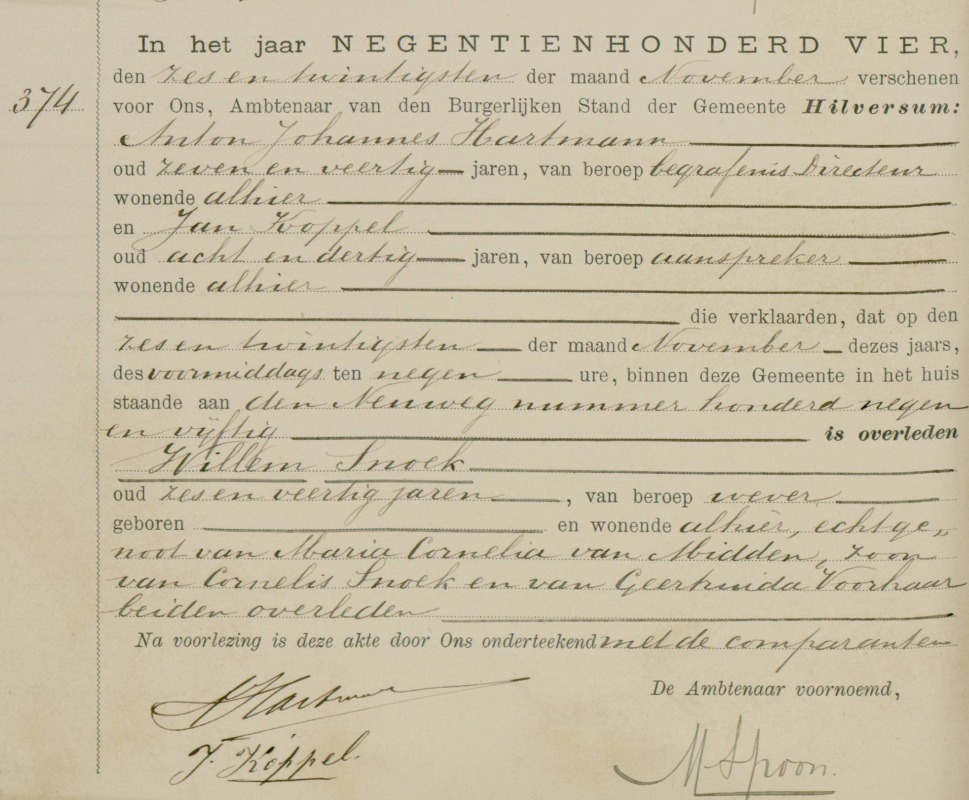 In het jaar NEGENTIENHONDERD VIER,
den zes en twintigsten der maand November verschenen
374
voor Ons, Ambtenaar van den Burgerlijken Stand der Gemeente Hilversum:
Anton Johannes Hartmann
oud zeven en veertig jaren, van beroep begrafenis Directeur
wonende alhier
en Jan Koppel
oud acht en dertig jaren, van beroep aanspreker
wonende alhier
die verklaarden, dat op den
zes en twintigsten der maand November dezes jaars,
des voormiddags ten negen ure, binnen deze Gemeente in het huis
staande aan den Neuweg nummer honderd negen
en vijftig is overleden
Willem Snoek
oud zes en veertig jaren, van beroep wever
geboren en wonende alhier, echtge„
noot van Maria Cornelia van Midden, zoon
van Cornelis Snoek en van Geertruida Voorhaar
beiden overleden
Na voorlezing is deze akte door Ons onderteekend met de comparanten
De Ambtenaar voornoemd,
A Hartmann
J. Koppel.
M Spoon.